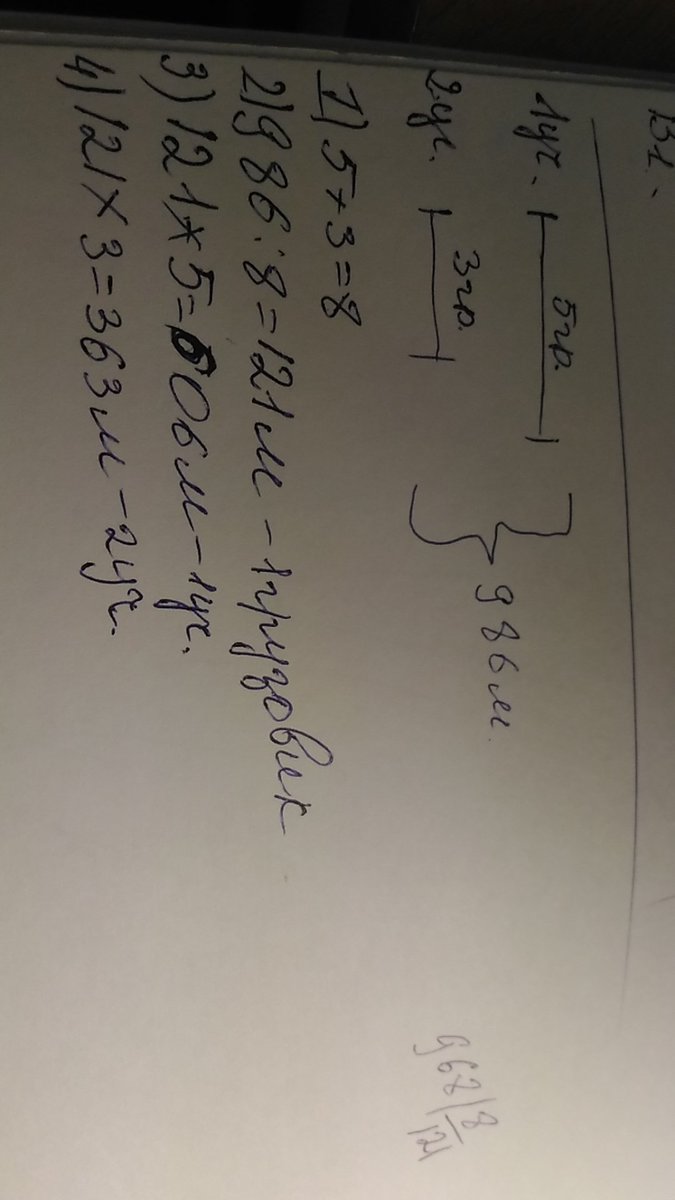 В1.
1уч. 5гр.
2уч. 3гр.
986м.
1) 5+3=8
2) 986:8=121м-1грузовик
3) 121×5=606м-1уч.
4) 121×3=363м-2уч.
968|8
121